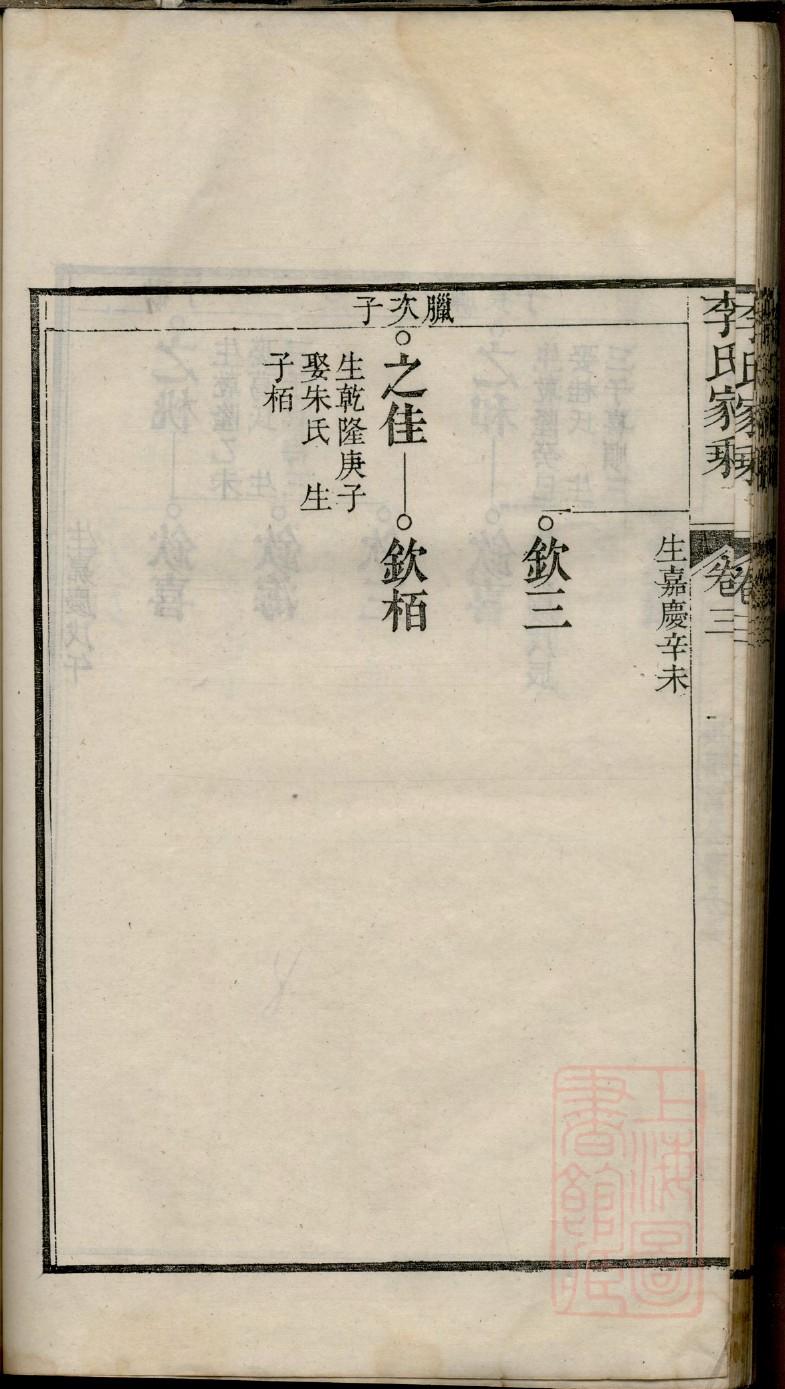 李氏家乘
卷三
生嘉慶辛未
欽三
臘次子
之佳
欽栢
生乾隆庚子
娶朱氏 生
子栢
上海圖
書館藏